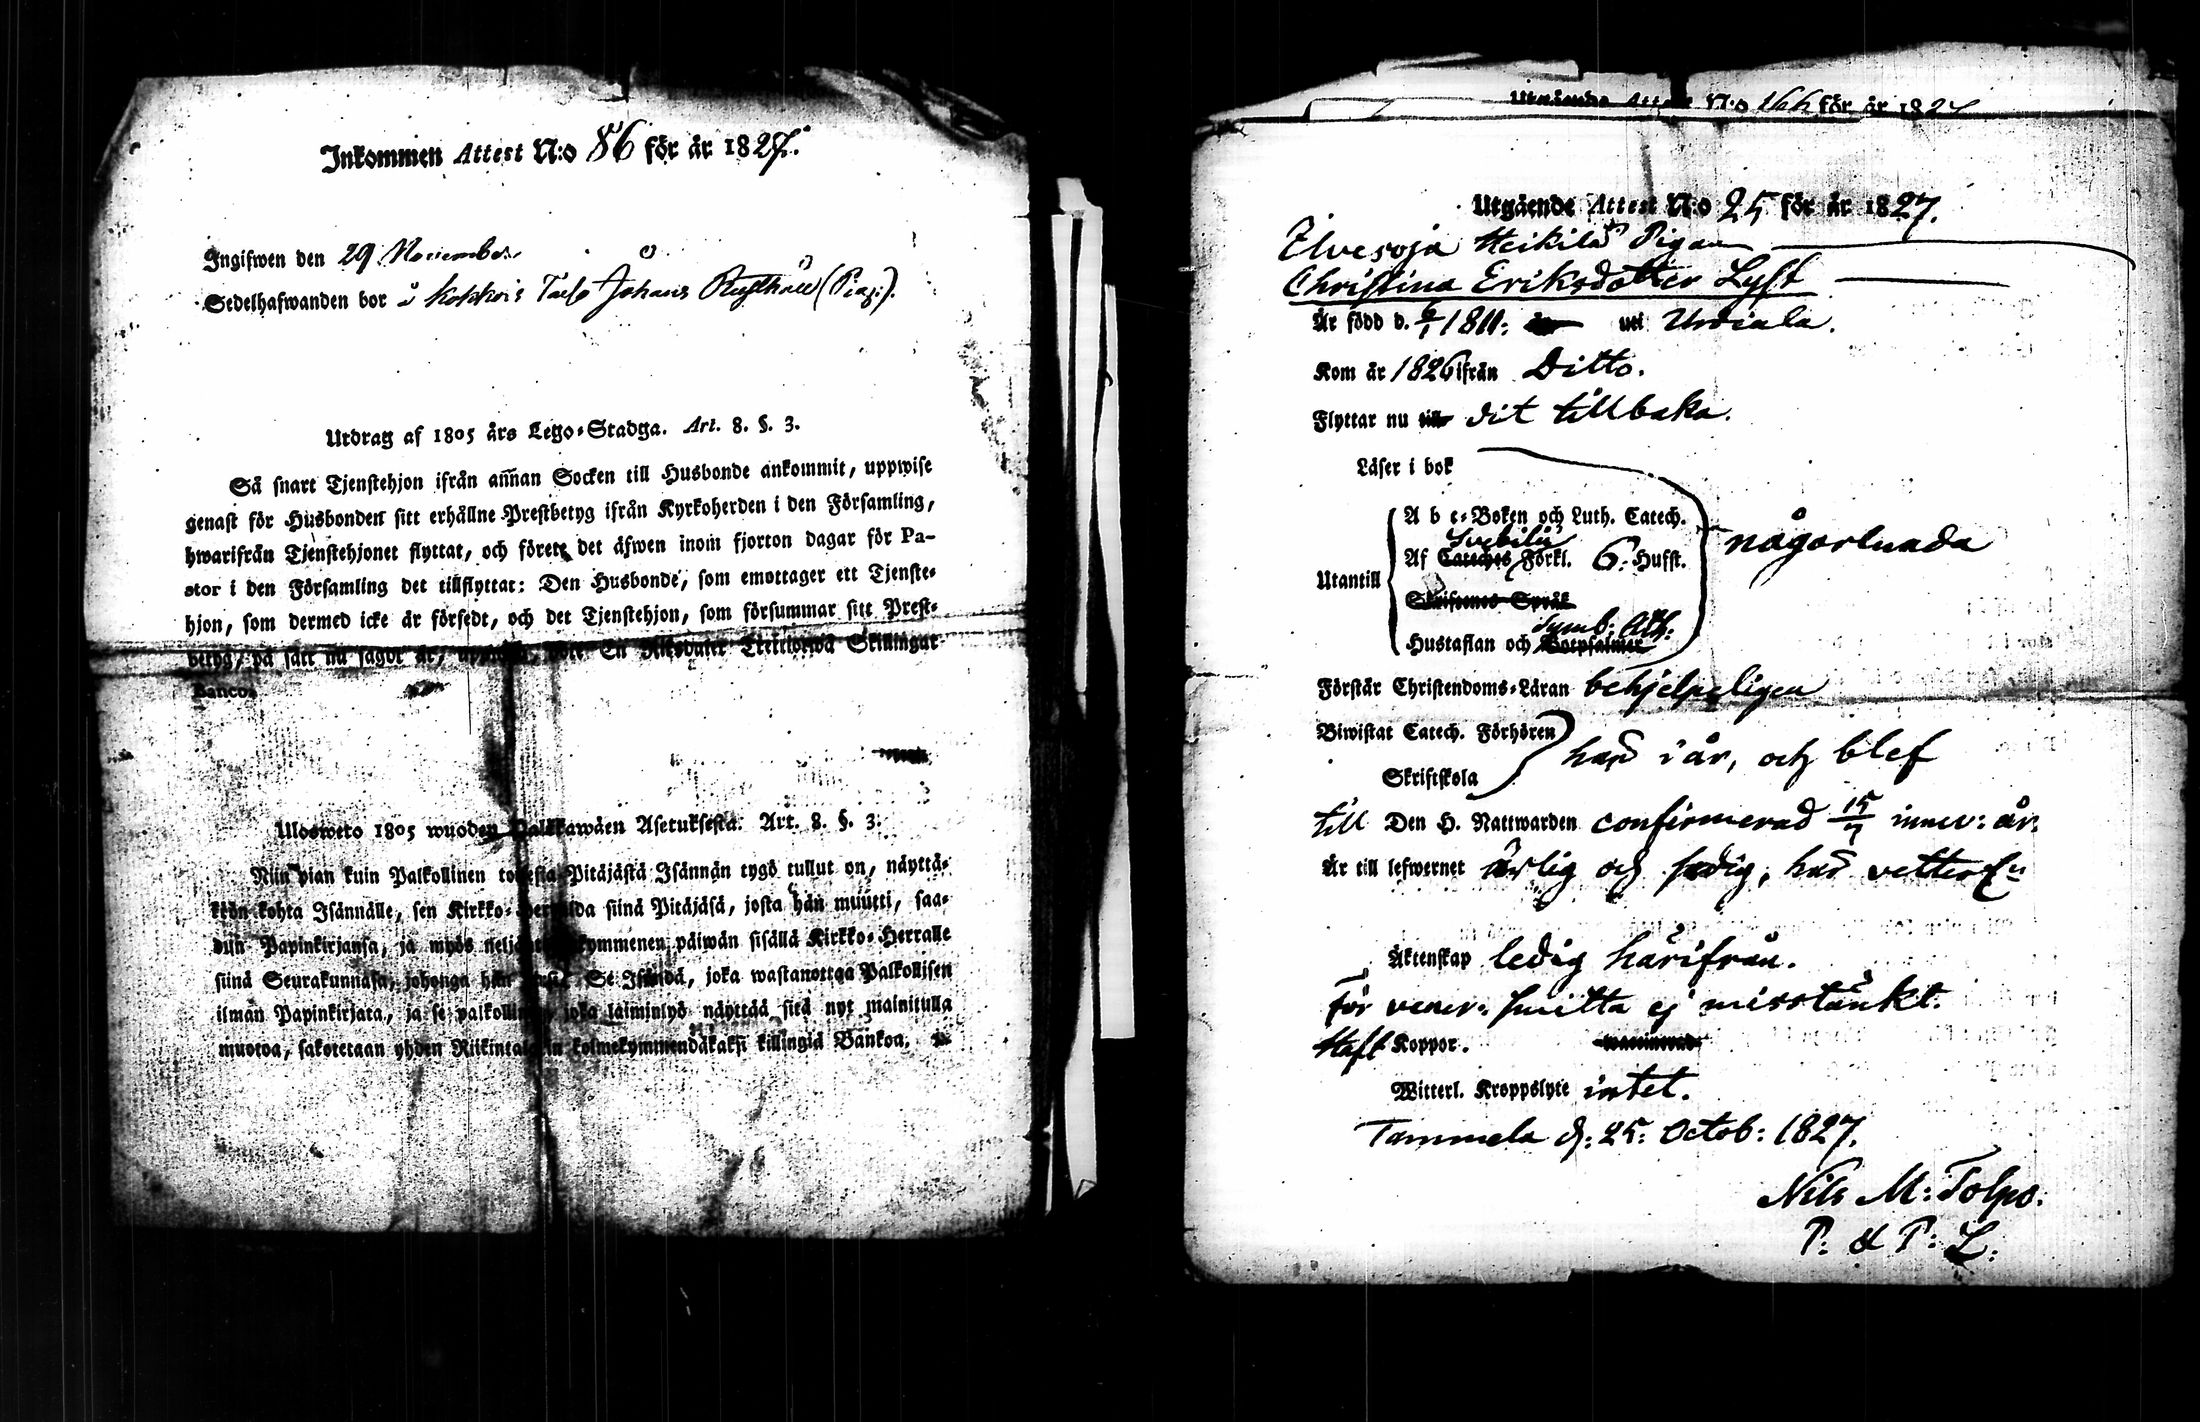 Inkommen Attest N:o 86 för år 1827.
Ingifwen den 29 November
Sedelhafwanden bor å Kokkois Johans (Pig:).
Utdrag af 1805 års Lego-Stadga. Art. 8. §. 3.
Så snart Tjenstehjon ifrån annan Socken till Husbonde ankommit, uppwise
genast för Husbonden sitt erhållne Prestbetyg ifrån Kyrkoherden i den Församling,
hwarifrån Tjenstehjonet flyttat, och förete det äfwen inom fjorton dagar för Pa-
stor i den Församling det tillflyttat: Den Husbonde, som emottager ett Tjenste-
hjon, som dermed icke är försedt, och det Tjenstehjon, som försummar sitt Prest-
betyg, på sätt nu sagdt är, En Riksdaler Trettiotwå Skillingar
Banco.
Ulosweto 1805 wuoden Palkkawäen Asetuksesta. Art. 8. §. 3.
Niin pian kuin Palkollinen toisesta Pitäjästä Isännän tygö tullut on, näyttä-
kön kohta Isännälle, sen Kirkko-Herralda siinä Pitäjäsä, josta hän muutti, saa-
dun Papinkirjansa, ja myös neljäntoistakymmenen päiwän sisällä Kirkko-Herralle
siinä Seurakunnasa, johonga hän Se Isändä, joka wastanottaa Palkollisen
ilman Papinkirjata, ja se palkollinen, joka laiminlyö näyttää sitä nyt mainitulla
muotoa, sakotetaan yhden Riikintalarin kolmekymmendäkaksi killingiä Bankoa.
Utgående Attest N:o 166 för år 1827
Utgående Attest N:o 25 för år 1827.
Heikilä Pigan
Christina Eriksdotter Lyst
Är född d. 6/1 1811. uti Urdiala.
Kom år 1826 ifrån Ditto.
Flyttar nu till dit tillbaka.
Läser i bok
A b c-Boken och Luth. Catech.
Svebilii
Af Cateches Förkl. 6. Hufst.
någorlunda
Utantill
Skriftenes Språk
Symb: Ath:
Hustaflan och Botpsalmer
Förstår Christendoms-Läran behjelpeligen
Biwistat Catech. Förhören
har i år, och blef
Skriftskola
till Den H. Nattwarden confirmerad 15/7 innev: år.
Är till lefwernet ärlig och sedig, har
Äktenskap ledig härifrån.
För vener: smitta ej misstänkt.
Haft Koppor. waccinerad
Witterl. Kroppslyte intet.
Tammela d: 25: Octob: 1827.
Nils M: Tolpo.
P: & P: L.